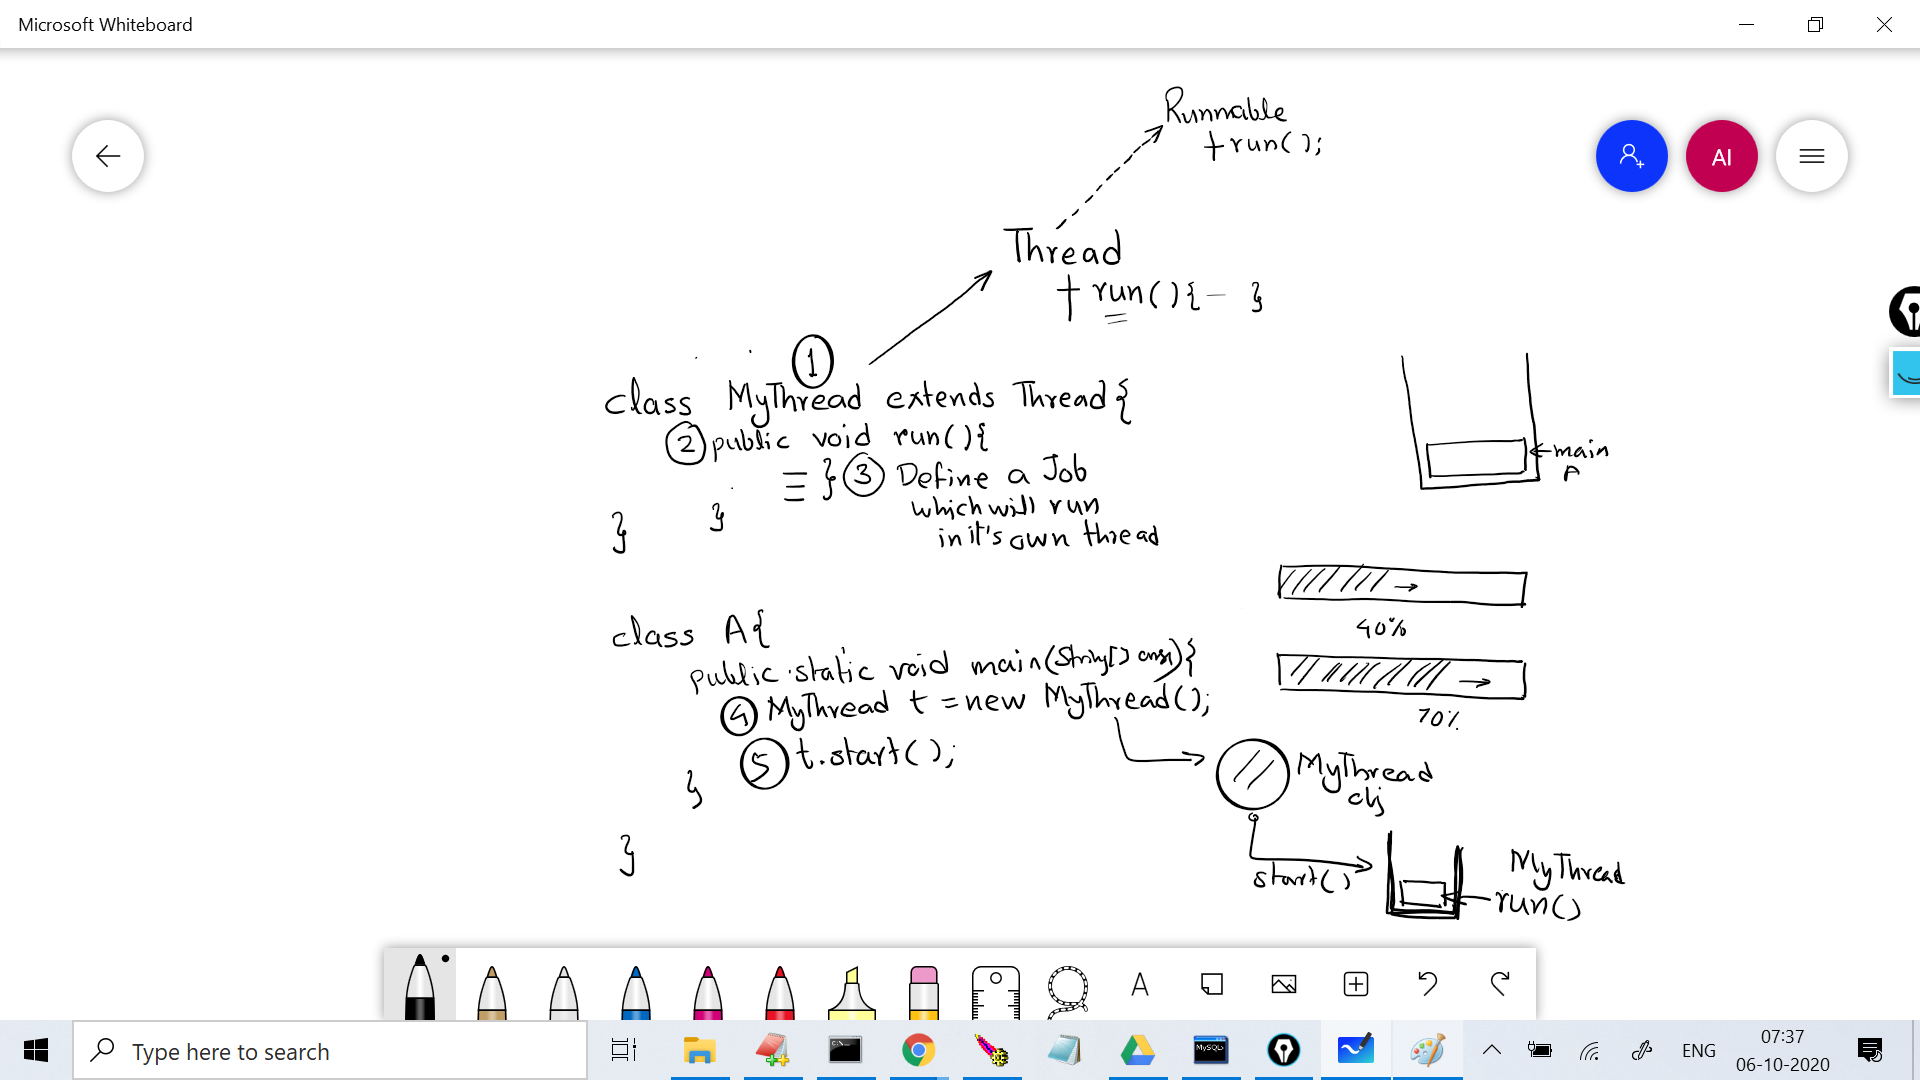 Microsoft Whiteboard
Runnable
+run();
AI
Thread
+ run(){- }
1
class MyThread extends Thread{
2 public void run(){
} 3 Define a Job
which will run
in it's own thread
}
}
main
A
40%
70%
class A{
public static void main(String[] args){
4 MyThread t = new MyThread();
5 t.start();
}
}
MyThread
obj
start()
MyThread
run()
A
Type here to search
MySQL
ENG
07:37
06-10-2020